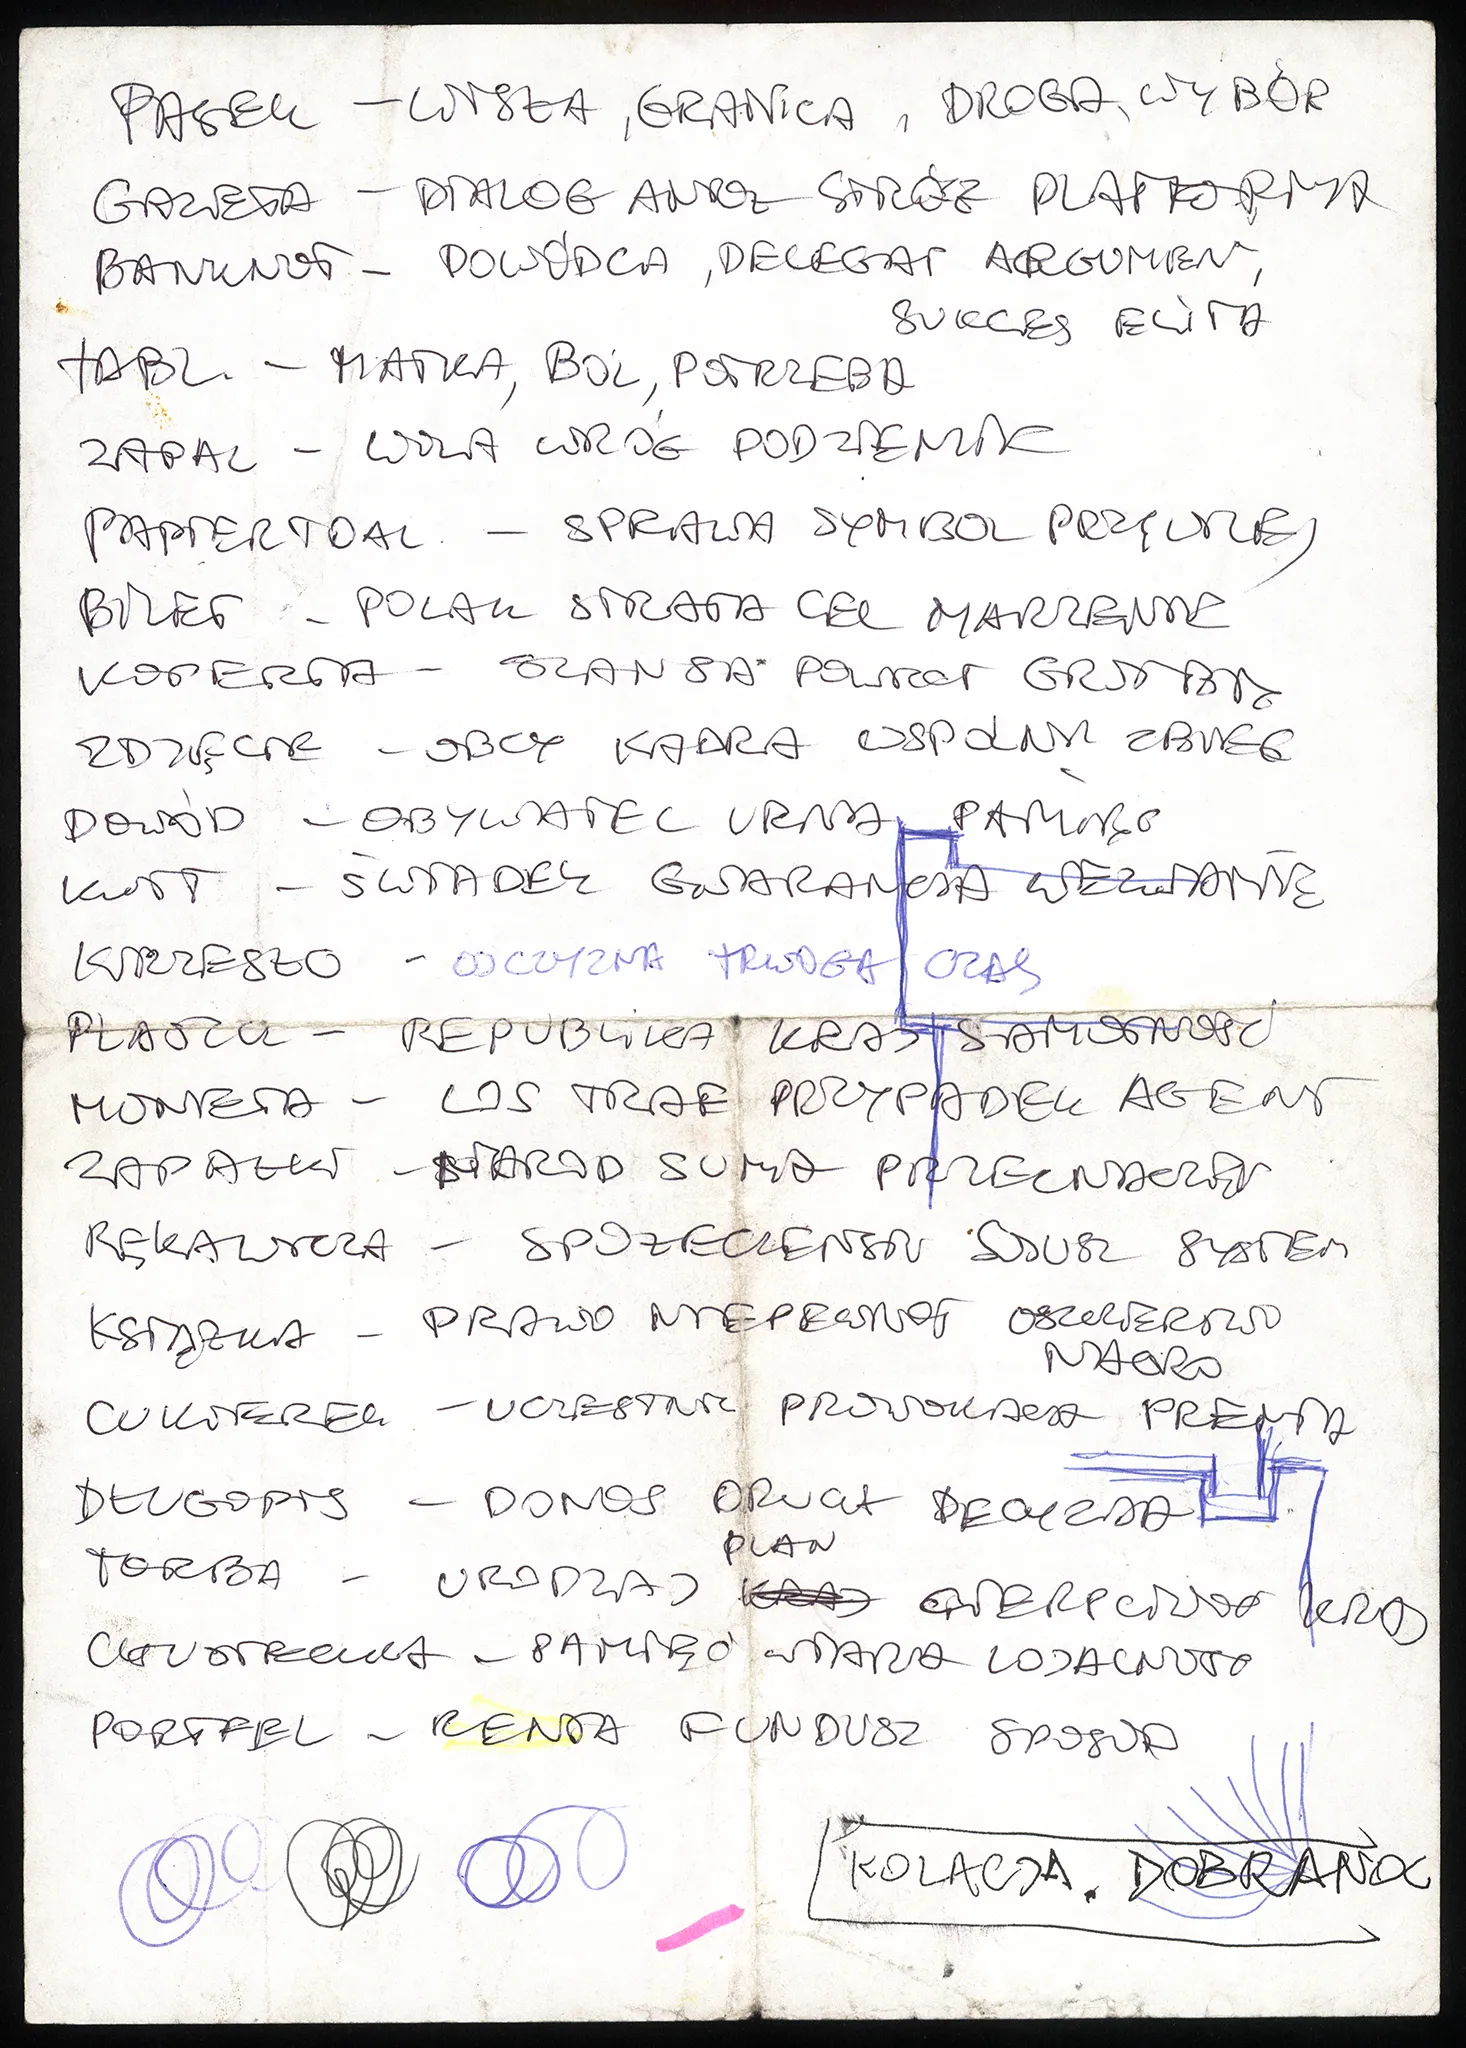 PASEK – WISŁA, GRANICA, DROGA, WYBÓR
GAZETA – DIALOG ANIOŁ STRÓŻ PLATFORMA
BANKNOT – DOWÓDCA, DELEGAT ARGUMENT,
SUKCES ELITA
TABL. – MATKA, BÓL, POTRZEBA
ZAPAL – WOLA WRÓG PODZIEMIE
PAPIER TOAL. – SPRAWA SYMBOL PRZYWILEJ
BILET – POLAK STRATA CEL MARZENIE
KOPERTA – SZANSA POWRÓT
ZDJĘCIE – OBCY KADRA WSPÓLNY ZBIEG
DOWÓD – OBYWATEL URNA PAMIĘĆ
KWIT – ŚWIADEK GWARANCJA WEZWANIE
KRZESŁO – OJCZYZNA TRWOGA CZAS
PLASTER – REPUBLIKA KRAJ SAMOTNOŚĆ
MONETA – LOS TRAF PRZYPADEK AGENT
ZAPAŁKI – NARÓD SUMA
RĘKAWICZKA – SPOŁECZEŃSTW SOJUSZ SYSTEM
KSIĄŻKA – PRAWO NIEPEWNOŚ
CUKIEREK – UCZESTNIK PROWOKACJA PREMIA
DŁUGOPIS – DONOS DRUGA DECYZJA
PLAN
TORBA – URODZAJ KRAJ CIERPLIWOŚ KRAJ
CHUSTECZKA – PAMIĘĆ WIARA LOJALNOŚĆ
PORTFEL – RENTA FUNDUSZ SPOSÓB
KOLACJA. DOBRANOC